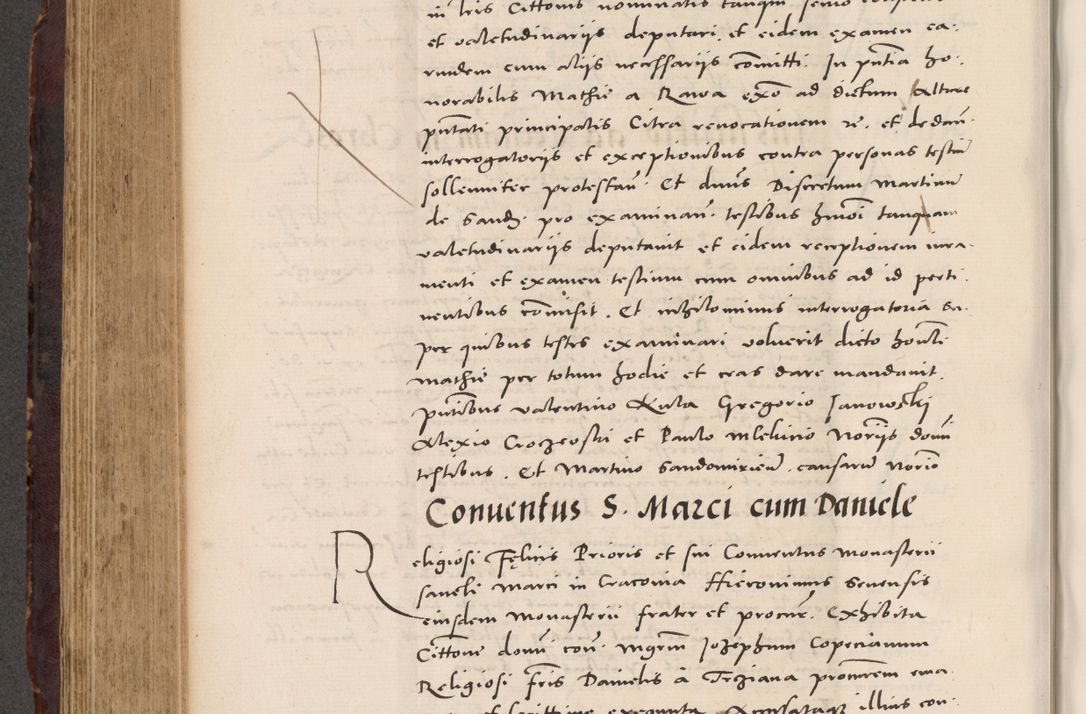 in lris Cittonis nominatis tanqm
et valetudinarijs deputari, et eidem examen ea-
rundem cum alijs necessarijs comitti. In pntia ho-
norabilis Mathie a Rawa exo ad dictum Alture
pntati principalis Citra revocationem re. et de dan
interrogatorijs et exceptionibus contra personas testiu
sollemniter protestan. Et dnus Discretum Martinu
de Sandz. pro examinan. testibus hmoi tanquam
valetudinarijs deputavit et eidem receptionem iura-
menti et examen testium cum omnibus ad id perti-
nentibus comisit. Et nihilominus interrogatoria su-
per quibus testes examinari voluerit dicto honli
Mathie per totum hodie et cras dare mandavit.
pntibus Valentino Kula Gregorio Janowski
Alexio Crozewski et Paulo Mlekicio Norijs domi
testibus. Et Martino Sandomirien. causaru Norio
Conventus S. Marci cum Daniele
Religiosi Felicis Prioris et sui Conventus Monasterii
sancti Marci in Cracovia Hieronimus Senensis
eiusdem Monasterii frater et procur. Exhibita
Cittone domi con. mgrm Jozephum Copecianum
Religiosi fris Danielis a Trziana procurem ema-
et legittime exequuta Accusataque illius con-